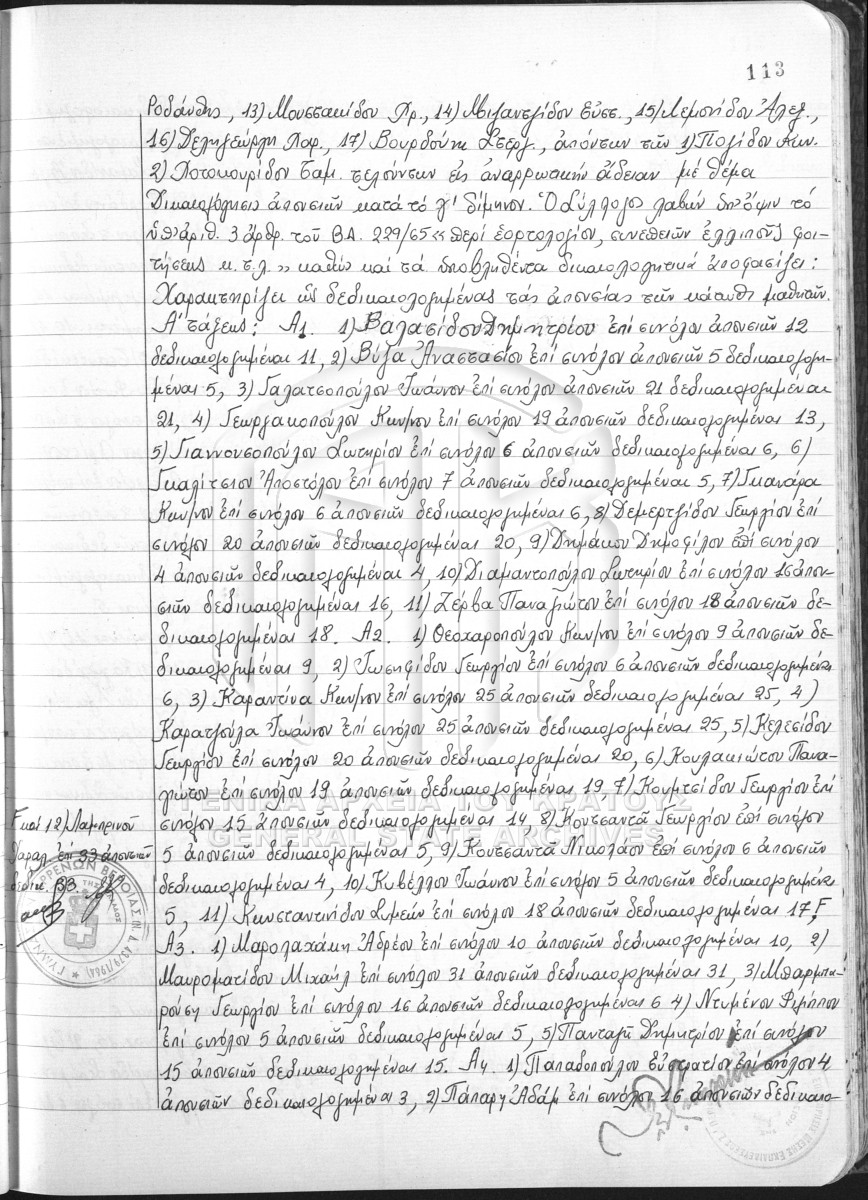 113
Ροδάνθης, 13) Μουσσακίδου Πρ., 14) Μιχαντζίδου Εὐσ., 15) Λεμονίδου Ἀλεξ.,
16) Δεληγεώργη Παρ., 17) Βουρδούνη Στεργ., ἀπόντων τῶν 1) Ποζίδου Κων.
2) Ποτουρίδου Ταμ. τελούντων εἰς ἀναρρωτικήν ἄδειαν μέ θέμα
Δικαιολόγησις ἀπουσιῶν κατά τό γ' δίμηνον. Ὁ Σύλλογος λαβών ὑπ' ὄψιν τό
ὑπ' ἀριθ. 3 ἄρθρ. τοῦ Β.Δ. 229/65 «περί ἑορτολογίου, συνεπειῶν ἐλλιποῦς φοι-
τήσεως κ.τ.λ.» καθώς καί τά ὑποβληθέντα δικαιολογητικά ἀποφασίζει:
Χαρακτηρίζει ὡς δεδικαιολογημένας τάς ἀπουσίας τῶν κάτωθι μαθητῶν.
Α' τάξεως: Α1. 1) Βαλασίδου Δημητρίου ἐπί συνόλου ἀπουσιῶν 12
δεδικαιολογημέναι 11, 2) Βύζα Ἀναστασίου ἐπί συνόλου ἀπουσιῶν 5 δεδικαιολογη-
μέναι 5, 3) Γαλατσοπούλου Ἰωάννου ἐπί συνόλου ἀπουσιῶν 21 δεδικαιολογημέναι
21, 4) Γεωργακοπούλου Κων/νου ἐπί συνόλου 19 ἀπουσιῶν δεδικαιολογημέναι 13,
5) Γιαννουσοπούλου Σωτηρίου ἐπί συνόλου 6 ἀπουσιῶν δεδικαιολογημέναι 6, 6)
Γκαλίτσιου Ἀποστόλου ἐπί συνόλου 7 ἀπουσιῶν δεδικαιολογημέναι 5, 7) Γκανάρα
Κων/νου ἐπί συνόλου 6 ἀπουσιῶν δεδικαιολογημέναι 6, 8) Δεμερτζίδου Γεωργίου ἐπί
συνόλου 20 ἀπουσιῶν δεδικαιολογημέναι 20, 9) Δημάκου Δημοφίλου ἐπί συνόλου
4 ἀπουσιῶν δεδικαιολογημέναι 4, 10) Διαμαντοπούλου Σωτηρίου ἐπί συνόλου 16 ἀπου-
σιῶν δεδικαιολογημέναι 16, 11) Ζέρβα Παναγιώτου ἐπί συνόλου 18 ἀπουσιῶν δε-
δικαιολογημέναι 18. Α2. 1) Θεοχαροπούλου Κων/νου ἐπί συνόλου 9 ἀπουσιῶν δε-
δικαιολογημέναι 9, 2) Ἰωσηφίδου Γεωργίου ἐπί συνόλου 6 ἀπουσιῶν δεδικαιολογημέναι
6, 3) Καραντίνα Κων/νου ἐπί συνόλου 25 ἀπουσιῶν δεδικαιολογημέναι 25, 4)
Καρατζούλα Ἰωάννου ἐπί συνόλου 25 ἀπουσιῶν δεδικαιολογημέναι 25, 5) Κελεσίδου
Γεωργίου ἐπί συνόλου 20 ἀπουσιῶν δεδικαιολογημέναι 20, 6) Κουλακιώτου Πανα-
γιώτου ἐπί συνόλου 19 ἀπουσιῶν δεδικαιολογημέναι 19, 7) Κουμτσίδου Γεωργίου ἐπί
συνόλου 15 ἀπουσιῶν δεδικαιολογημέναι 14, 8) Κουτσαντᾶ Γεωργίου ἐπί συνόλου
5 ἀπουσιῶν δεδικαιολογημέναι 5, 9) Κουτσαντᾶ Νικολάου ἐπί συνόλου 6 ἀπουσιῶν
δεδικαιολογημέναι 4, 10) Κυβέλλου Ἰωάννου ἐπί συνόλου 5 ἀπουσιῶν δεδικαιολογημέναι
5, 11) Κωνσταντινίδου Συμεών ἐπί συνόλου 18 ἀπουσιῶν δεδικαιολογημέναι 17,
Α3. 1) Μαρολαχάκη Ἀδρέου ἐπί συνόλου 10 ἀπουσιῶν δεδικαιολογημέναι 10, 2)
Μαυροματίδου Μιχαήλ ἐπί συνόλου 31 ἀπουσιῶν δεδικαιολογημέναι 31, 3) Μπαρμπα-
ρούση Γεωργίου ἐπί συνόλου 16 ἀπουσιῶν δεδικαιολογημέναι 6 4) Ντυμένου Φιλίππου
ἐπί συνόλου 5 ἀπουσιῶν δεδικαιολογημέναι 5, 5) Πανταζῆ Δημητρίου ἐπί συνόλου
15 ἀπουσιῶν δεδικαιολογημέναι 15. Α4. 1) Παπαδοπούλου Εὐστρατίου ἐπί συνόλου 4
ἀπουσιῶν δεδικαιολογημέναι 3, 2) Πάπαρη Ἀδάμ ἐπί συνόλου 16 ἀπουσιῶν δεδικαιο-
καί 12) Λαμπρινοῦ
Χαραλ. ἐπί 33 ἀπουσιῶν
δεδικ. 33.
ΓΕΝΙΚΑ ΑΡΧΕΙΑ ΤΟΥ ΚΡΑΤΟΥΣ
GENERAL STATE ARCHIVES